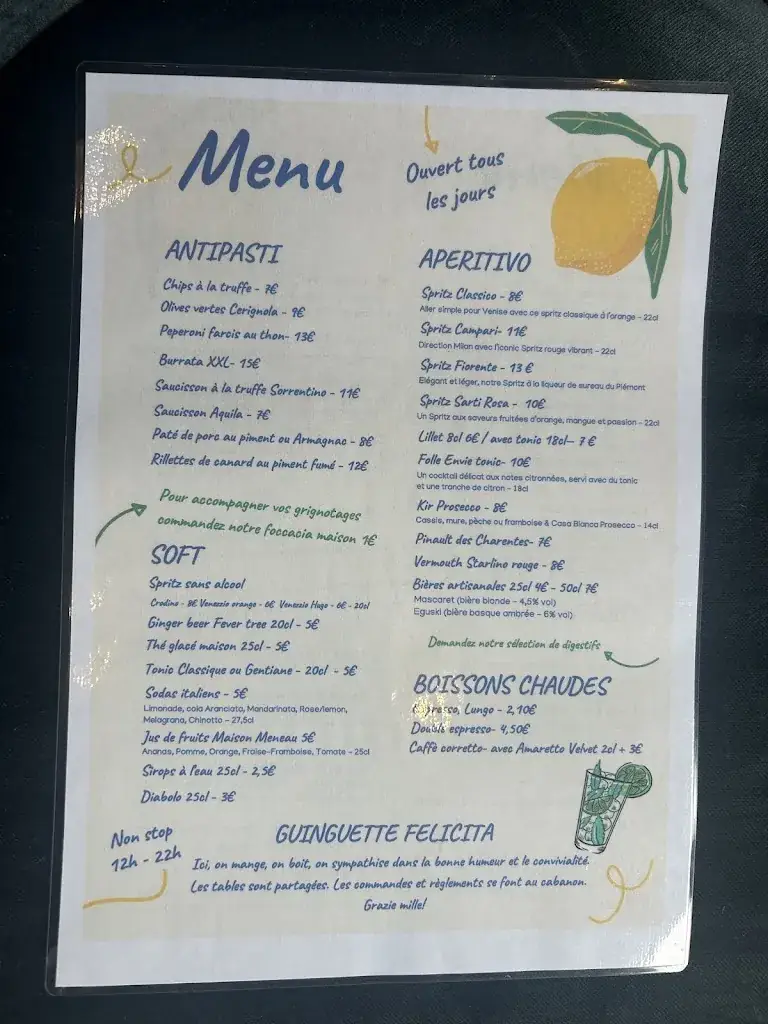 Menu
Ouvert tous
les jours
ANTIPASTI
Chips à la truffe - 7€
Olives vertes Cerignola - 9€
Peperoni farcis au thon- 13€
Burrata XXL- 15€
Saucisson à la truffe Sorrentino - 11€
Saucisson Aquila - 7€
Paté de porc au piment ou Armagnac - 8€
Rillettes de canard au piment fumé - 12€
Pour accompagner vos grignotages
commandez notre foccacia maison 1€
SOFT
Spritz sans alcool
Crodino - 8€ Venezzio orange - 6€ Venezzio Hugo - 6€ - 20cl
Ginger beer Fever tree 20cl - 5€
Thé glacé maison 25cl - 5€
Tonic Classique ou Gentiane - 20cl - 5€
Sodas italiens - 5€
Limonade, cola Aranciata, Mandarinata, Rose/lemon,
Melagrana, Chinotto - 27,5cl
Jus de fruits Maison Meneau 5€
Ananas, Pomme, Orange, Fraise-Framboise, Tomate - 25cl
Sirops à l'eau 25cl - 2,5€
Diabolo 25cl - 3€
APERITIVO
Spritz Classico - 8€
Aller simple pour Venise avec ce spritz classique à l'orange - 22cl
Spritz Campari- 11€
Direction Milan avec l'iconic Spritz rouge vibrant - 22cl
Spritz Fiorente - 13 €
Elégant et léger, notre Spritz à la liqueur de sureau du Piémont
Spritz Sarti Rosa - 10€
Un Spritz aux saveurs fruitées d'orange, mangue et passion - 22cl
Lillet 8cl 6€ / avec tonic 18cl- 7 €
Folle Envie tonic- 10€
Un cocktail délicat aux notes citronnées, servi avec du tonic
et une tranche de citron - 18cl
Kir Prosecco - 8€
Cassis, mure, pèche ou framboise & Casa Bianca Prosecco - 14cl
Pinault des Charentes- 7€
Vermouth Starlino rouge - 8€
Bières artisanales 25cl 4€ - 50cl 7€
Mascaret (bière blonde - 4,5% vol)
Eguski (bière basque ambrée - 6% vol)
Demandez notre sélection de digestifs
BOISSONS CHAUDES
Lungo - 2,10€
Double espresso- 4,50€
Caffè corretto- avec Amaretto Velvet 2cl + 3€
Non stop
12h - 22h
GUINGUETTE FELICITA
Ici, on mange, on boit, on sympathise dans la bonne humeur et le convivialité.
Les tables sont partagées. Les commandes et règlements se font au cabanon.
Grazie mille!